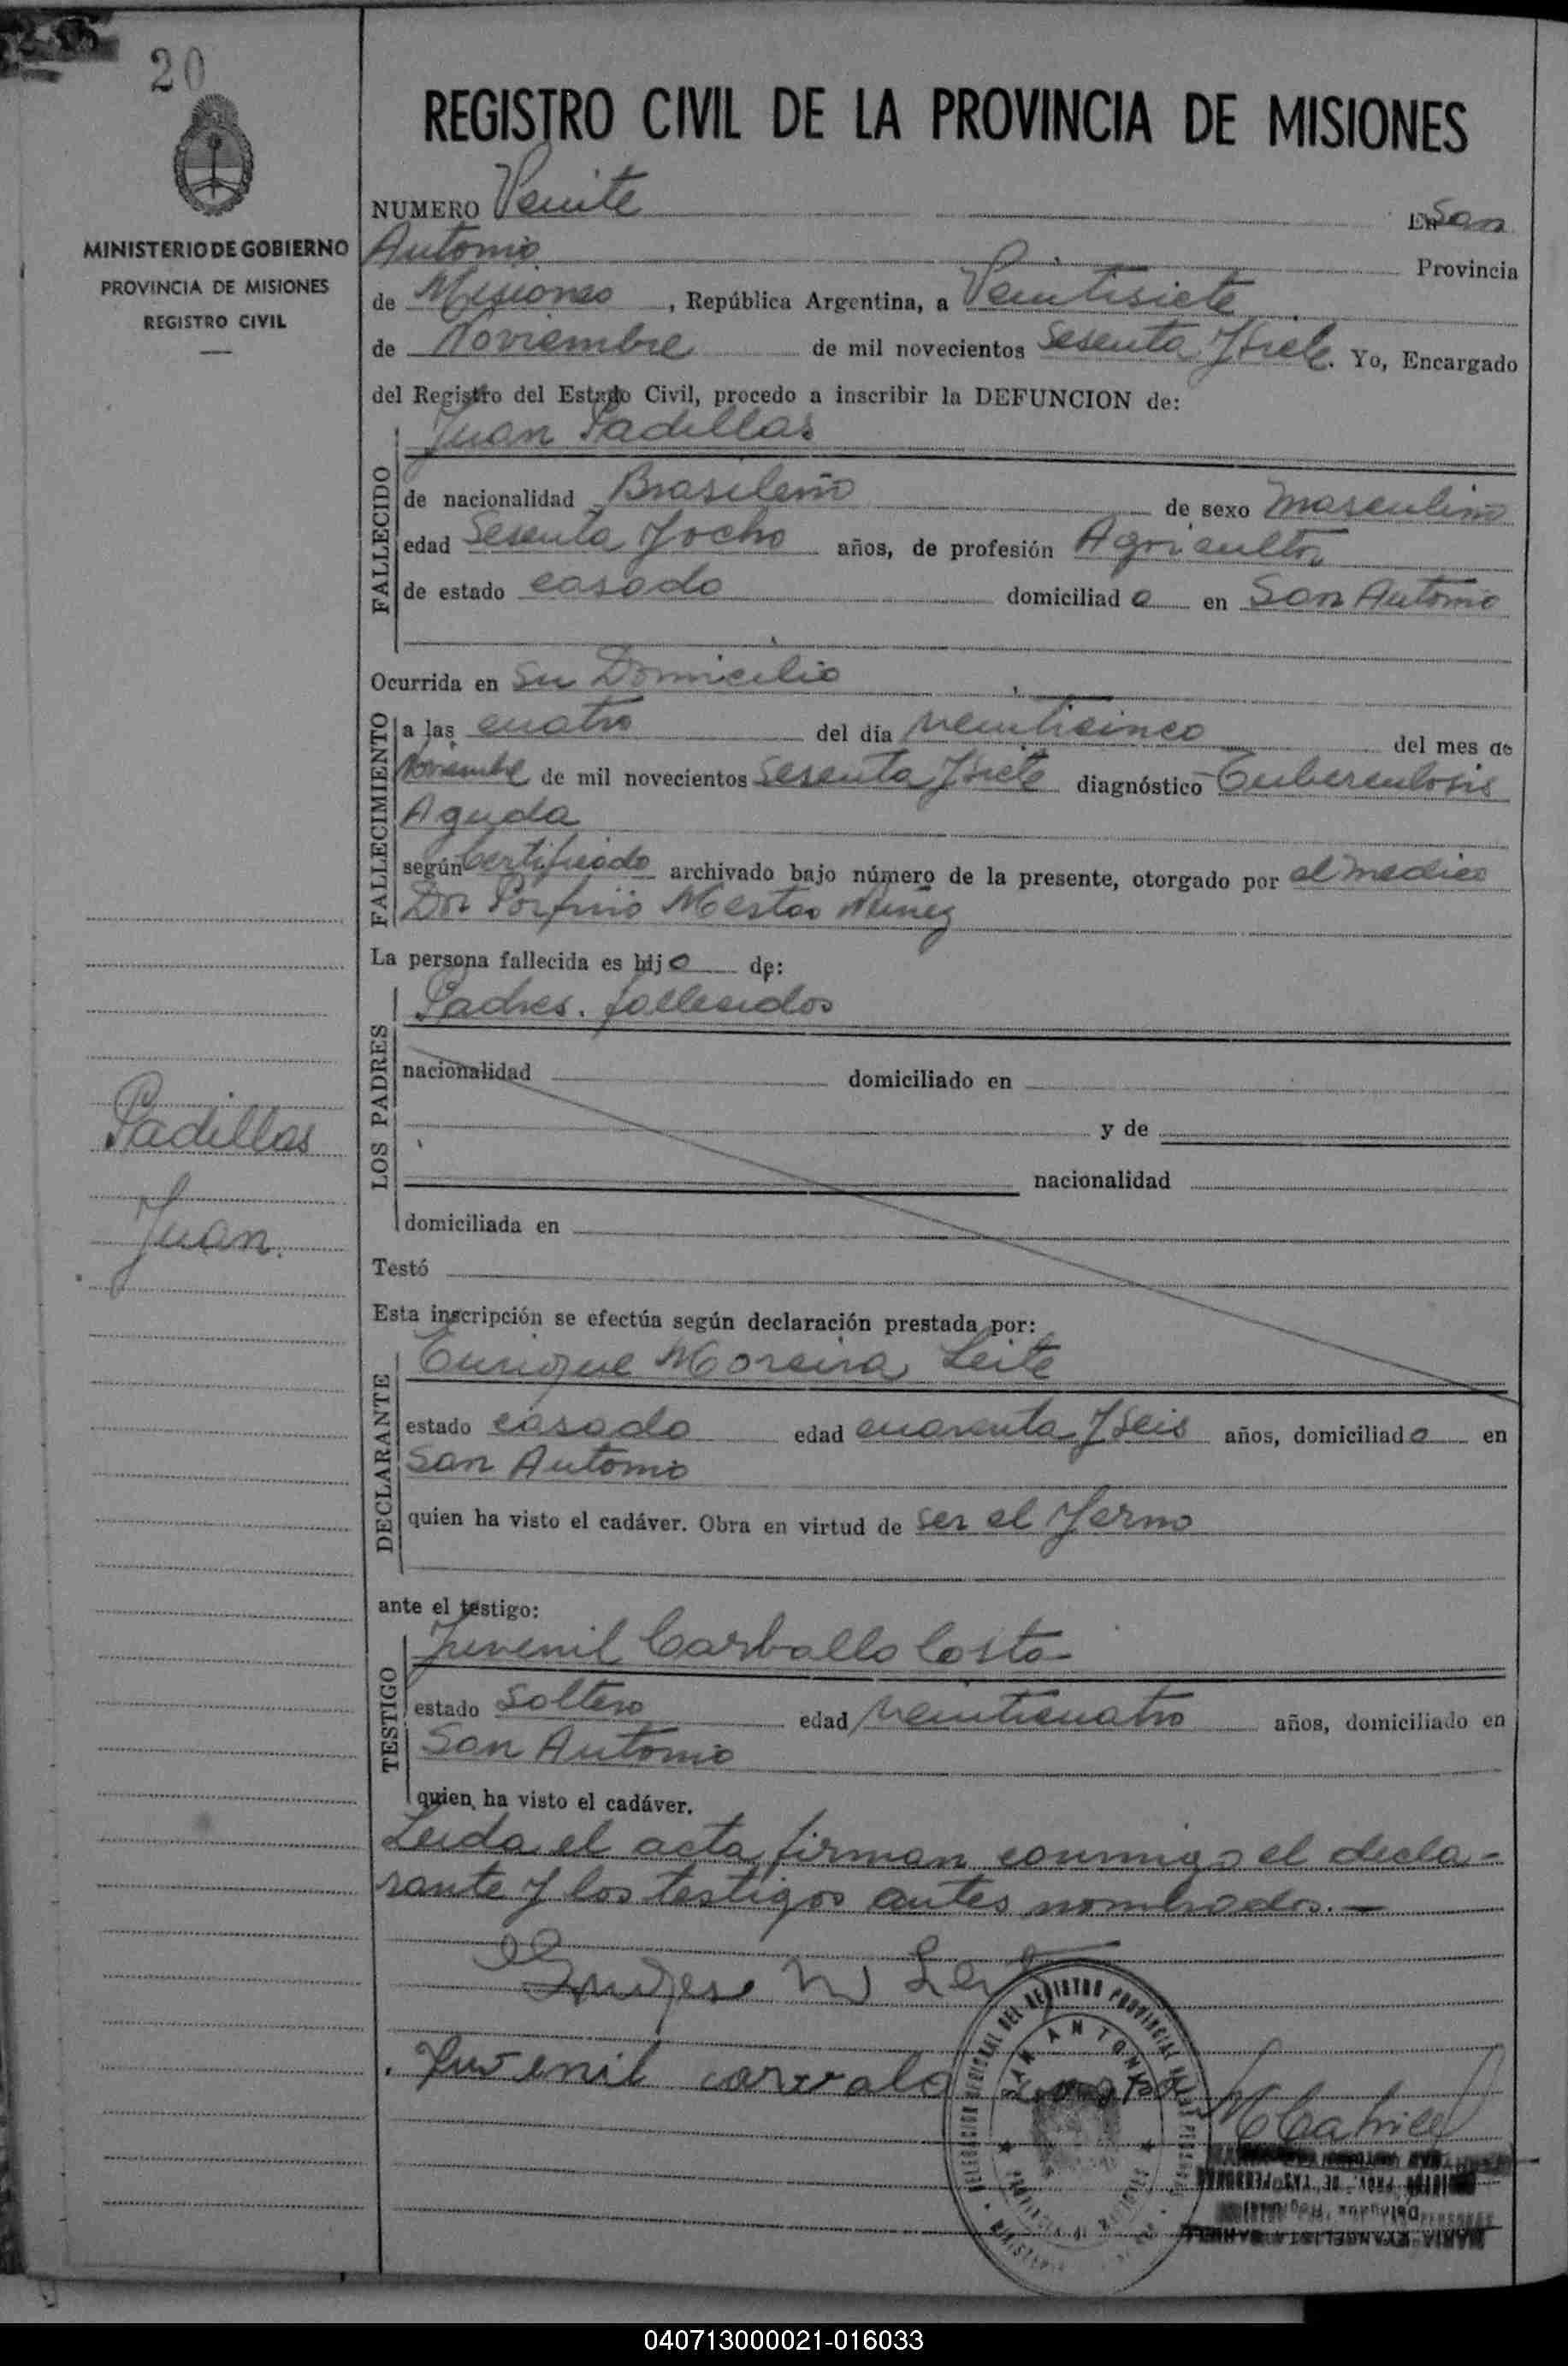 20
REGISTRO CIVIL DE LA PROVINCIA DE MISIONES
MINISTERIO DE GOBIERNO
PROVINCIA DE MISIONES
REGISTRO CIVIL
NUMERO Veinte EN San
Antonio Provincia
de Misiones, República Argentina, a Veintisiete
de Noviembre de mil novecientos Sesenta y siete. Yo, Encargado
del Registro del Estado Civil, procedo a inscribir la DEFUNCION de:
Juan Padillas
FALLECIDO
de nacionalidad Brasileño de sexo masculino
edad Sesenta y ocho años, de profesión Agricultor
de estado casado domiciliad o en San Antonio
Ocurrida en su Domicilio
FALLECIMIENTO
a las cuatro del día veinticinco del mes de
Noviembre de mil novecientos Sesenta y siete diagnóstico Tuberculosis
Aguda
según Certificado archivado bajo número de la presente, otorgado por el medico
Porfirio
La persona fallecida es hij o de:
LOS PADRES
Padres. fallecidos
nacionalidad domiciliado en
y de
nacionalidad
domiciliada en
Testó
Esta inscripción se efectúa según declaración prestada por:
DECLARANTE
Enrique Moreira Leite
estado casado edad cuarenta y seis años, domiciliad o en
San Antonio
quien ha visto el cadáver. Obra en virtud de ser el yerno
ante el testigo:
TESTIGO
Juvenil Carballo Costa
estado soltero edad veinticuatro años, domiciliado en
San Antonio
quien ha visto el cadáver.
Leida el acta firman conmigo el decla-
rante y los testigos antes nombrados.-
Padillas
Juan.
Juvenil carvalo
SAN ANTONIO
040713000021-016033